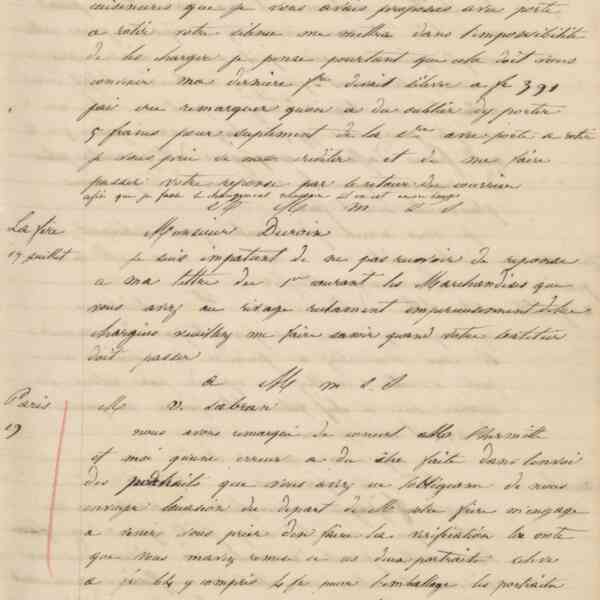 cuisinieres que je vous avais proposées avec porte
a rotir votre silence me mettra dans l'impossibilité
de les charger je pense pourtant que cela doit vous
convenir ma derniere fre disait livre a fr 391
j'ai cru remarquer qu'on a du oublier d'y porter
5 francs pour suplement de la avec porte a rotir
je vous prie de me et de me faire
passer votre reponse par le retour du courrier
afin que je fasse le changement s'il en est encore temps
a M m s S
La fere
17 juillet
Monsieur Duroin
je suis impatient de ne pas recevoir de reponse
a ma lettre du 1er courant les Marchandises que
vous avez au rivage reclament imperieusement d'etre
chargées veuillez me faire savoir quand votre batelier
doit passer
a M m s S
Paris
19
M v. sabran
nous avons remarqué de concert Mr l'hermitte
et moi qu'une erreur a du être faite dans l'envoi
des portraits que vous avez eu l'obligeance de nous
envoyer l'occasion du depart de M votre frere m'engage
a venir vous prier d'en faire la verification la note
que vous m'avez remise de vos deux portraits
a été y compris 4 fr pour l'emballage les portraits